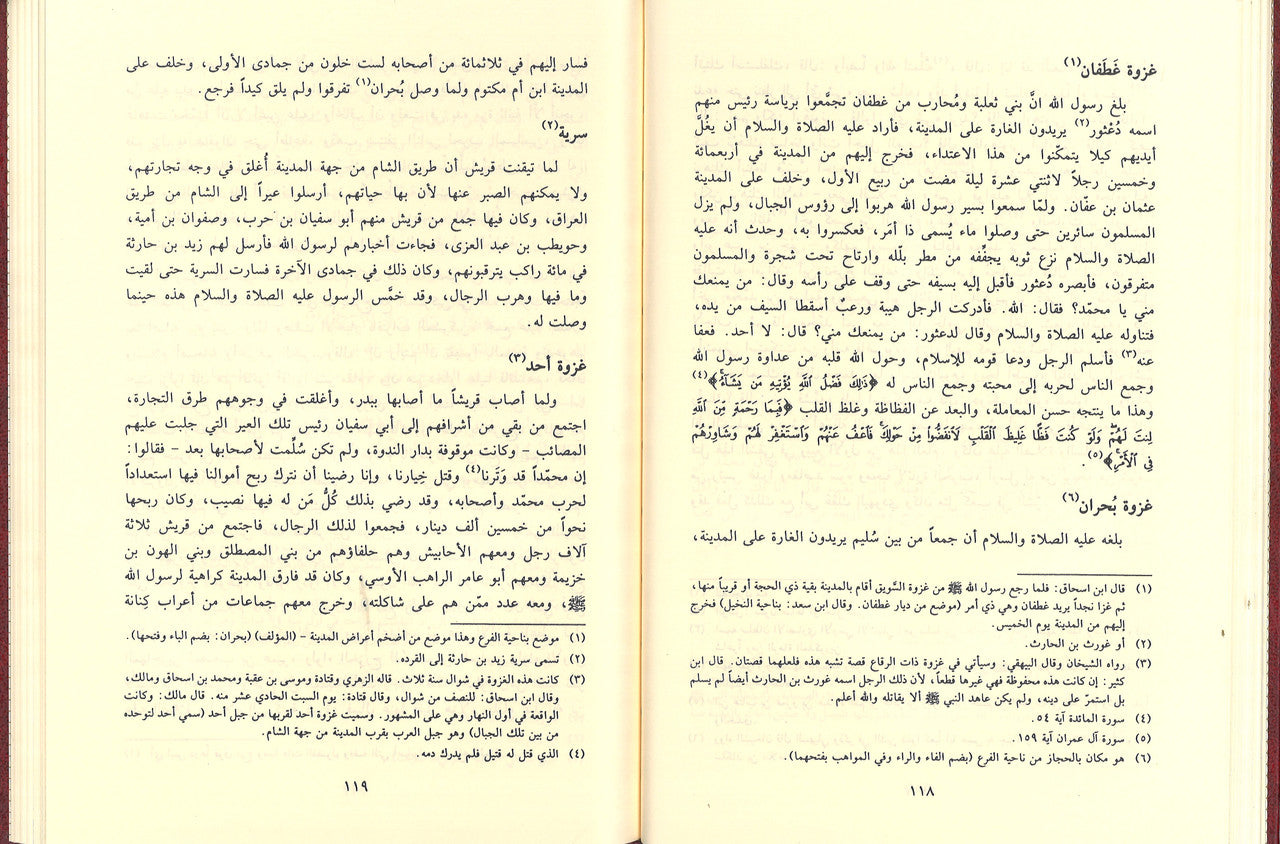 غزوة غَطَفان(١)
بلغ رسول الله انَّ بني ثعلبة ومُحارب من غطفان تجمَّعوا برياسة رئيس منهم
اسمه دُعْثور(٢) يريدون الغارة على المدينة، فأراد عليه الصلاة والسلام أن يغُلَّ
أيديهم كيلا يتمكّنوا من هذا الاعتداء، فخرج إليهم من المدينة في أربعمائة
وخمسين رجلاً لاثنتي عشرة ليلة مضت من ربيع الأول، وخلف على المدينة
عثمان بن عفّان. ولمّا سمعوا بسير رسول الله هربوا إلى رؤوس الجبال، ولم يزل
المسلمون سائرين حتى وصلوا ماء يُسمى ذا أمَر، فعكسروا به، وحدث أنه عليه
الصلاة والسلام نزع ثوبه يجفِّفه من مطر بلّله وارتاح تحت شجرة والمسلمون
متفرقون، فأبصره دُعثور فأقبل إليه بسيفه حتى وقف على رأسه وقال: من يمنعك
مني يا محمّد؟ فقال: الله. فأدركت الرجل هيبة ورعبٌ أسقطا السيف من يده،
فتناوله عليه الصلاة والسلام وقال لدعثور: من يمنعك مني؟ قال: لا أحد. فعفا
عنه(٣) فأسلم الرجل ودعا قومه للاسلام، وحول الله قلبه من عداوة رسول الله
وجمع الناس لحربه إلى محبته وجمع الناس له ﴿ذَٰلِكَ فَضْلُ ٱللَّهِ يُؤْتِيهِ مَن يَشَآءُ﴾(٤)
وهذا ما ينتجه حسن المعاملة، والبعد عن الفظاظة وغلظ القلب ﴿فَبِمَا رَحْمَةٍ مِّنَ ٱللَّهِ
لِنتَ لَهُمْ وَلَوْ كُنتَ فَظًّا غَلِيظَ ٱلْقَلْبِ لَٱنفَضُّوا۟ مِنْ حَوْلِكَ فَٱعْفُ عَنْهُمْ وَٱسْتَغْفِرْ لَهُمْ وَشَاوِرْهُمْ
فِى ٱلْأَمْرِ﴾(٥).
غزوة بُحران(٦)
بلغه عليه الصلاة والسلام أن جمعاً من بين سُليم يريدون الغارة على المدينة،
(١) قال ابن اسحاق: فلما رجع رسول الله ﷺ من غزوة السَّويق أقام بالمدينة بقية ذي الحجة أو قريباً منها،
ثم غزا نجداً يريد غطفان وهي ذي أمر (موضع من ديار غطفان. وقال ابن سعد: بناحية النخيل) فخرج
إليهم من المدينة يوم الخميس.
(٢) أو غورث بن الحارث.
(٣) رواه الشيخان وقال البيهقي: وسيأتي في غزوة ذات الرقاع قصة تشبه هذه فلعلهما قصتان. قال ابن
كثير: إن كانت هذه محفوظة فهي غيرها قطعاً، لأن ذلك الرجل اسمه غورث بن الحارث أيضاً لم يسلم
بل استمرّ على دينه، ولم يكن عاهد النبي ﷺ ألا يقاتله والله أعلم.
(٤) سورة المائدة آية ٥٤.
(٥) سورة آل عمران آية ١٥٩.
(٦) هو مكان بالحجاز من ناحية الفرع (بضم الفاء والراء وفي المواهب بفتحهما).
١١٨
فسار إليهم في ثلاثمائة من أصحابه لست خلون من جمادى الأولى، وخلف على
المدينة ابن أم مكتوم ولما وصل بُحران(١) تفرقوا ولم يلق كيداً فرجع.
سرية(٢)
لما تيقنت قريش أن طريق الشام من جهة المدينة أُغلق في وجه تجارتهم،
ولا يمكنهم الصبر عنها لأن بها حياتهم، أرسلوا عيراً إلى الشام من طريق
العراق، وكان فيها جمع من قريش منهم أبو سفيان بن حرب، وصفوان بن أمية،
وحويطب بن عبد العزى، فجاءت أخبارهم لرسول الله فأرسل لهم زيد بن حارثة
في مائة راكب يترقبونهم، وكان ذلك في جمادى الآخرة فسارت السرية حتى لقيت
وما فيها وهرب الرجال، وقد خمَّس الرسول عليه الصلاة والسلام هذه حينما
وصلت له.
غزوة أحد(٣)
ولما أصاب قريشاً ما أصابها ببدر، وأغلقت في وجوههم طرق التجارة،
اجتمع من بقي من أشرافهم إلى أبي سفيان رئيس تلك العير التي جلبت عليهم
المصائب - وكانت موقوفة بدار الندوة، ولم تكن سُلِّمت لأصحابها بعد - فقالوا:
إن محمّداً قد وَتَرنا(٤) وقتل خِيارنا، وإنا رضينا أن نترك ربح أموالنا فيها استعداداً
لحرب محمّد وأصحابه، وقد رضي بذلك كُلُّ مَن له فيها نصيب، وكان ربحها
نحواً من خمسين ألف دينار، فجمعوا لذلك الرجال، فاجتمع من قريش ثلاثة
آلاف رجل ومعهم الأحابيش وهم حلفاؤهم من بني المصطلق وبني الهون بن
خزيمة ومعهم أبو عامر الراهب الأوسي، وكان قد فارق المدينة كراهية لرسول الله
ﷺ، ومعه عدد ممّن هم على شاكلته، وخرج معهم جماعات من أعراب كِنانة
(١) موضع بناحية الفرع وهذا موضع من أضخم أعراض المدينة - (المؤلف) (بحران: بضم الباء وفتحها).
(٢) تسمى سرية زيد بن حارثة إلى القرده.
(٣) كانت هذه الغزوة في شوال سنة ثلاث. قاله الزهري وقتادة وموسى بن عقبة ومحمد بن اسحاق ومالك،
وقال ابن اسحاق: للنصف من شوال، وقال قتادة: يوم السبت الحادي عشر منه. قال مالك: وكانت
الواقعة في أول النهار وهي على المشهور. وسميت غزوة أحد لقربها من جبل أحد (سمي أحد لتوحده
من بين تلك الجبال) وهو جبل العرب بقرب المدينة من جهة الشام.
(٤) الذي قتل له قتيل فلم يدرك دمه.
١١٩